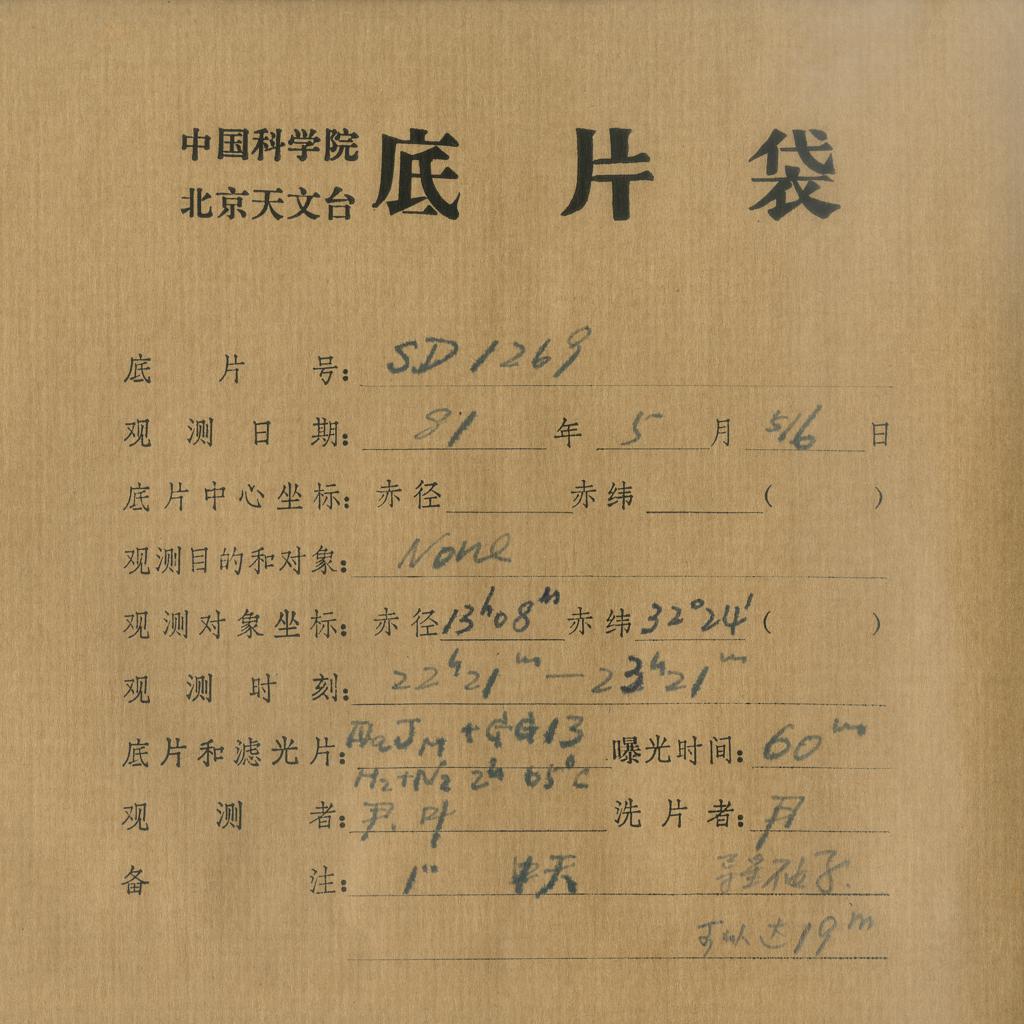 中国科学院
北京天文台
底片袋
底片号: SD1269
观测日期: 81年5月5/6日
底片中心坐标: 赤径 赤纬 ( )
观测目的和对象: None
观测对象坐标: 赤径13ʰ08ᵐ 赤纬32°24′ ( )
观测时刻: 22ʰ21ᵐ—23ʰ21ᵐ
底片和滤光片: + GG13 曝光时间: 60ᵐ
H2+N2 2ʰ 65°C
观测者: 尹. 叶 洗片者: 尹
备注: 1" 中天 导星不好.
可以达19ᵐ